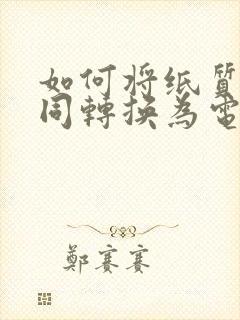 如何将纸質
同轉換為電
鄭賽賽